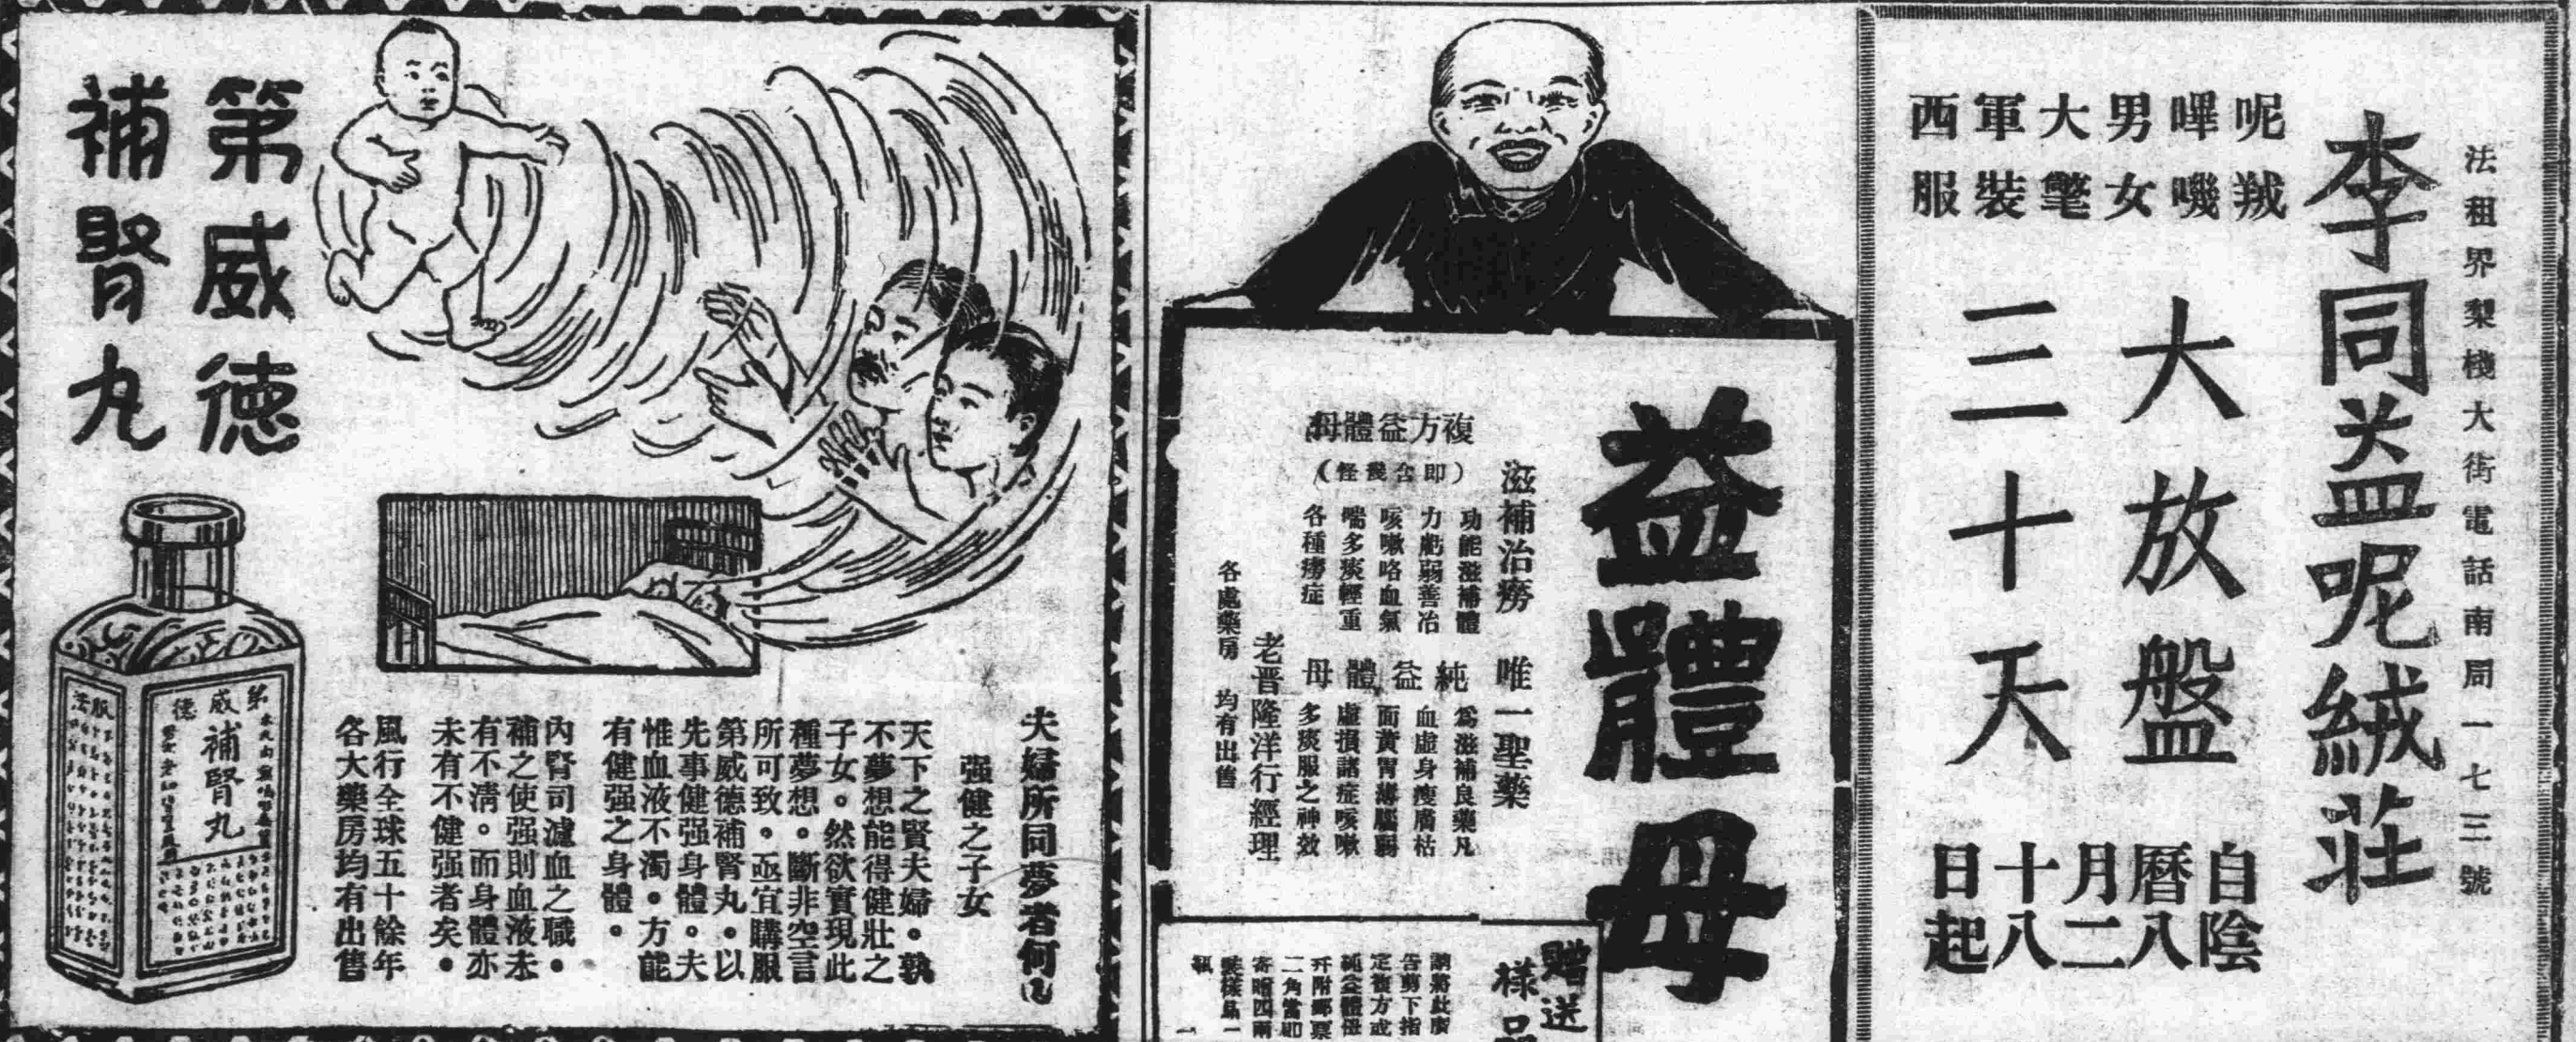 法租界梨棧大街電話南局一七三號
李同益呢絨莊
呢羢
嗶嘰
男女
大氅
軍裝
西服
大放盤
三十天
自陰
曆八
月二
十八
日起
益體母
滋補治癆　唯一聖藥
複方益體母
（即含幾怪）
功能滋補體
力虧弱善治
咳嗽咯血氣
喘多痰輕重
各種癆症
純益體母
為滋補良藥凡
血虛身瘦膚枯
面黃胃薄腦弱
虛損諸症咳嗽
多痰服之神效
老晋隆洋行經理
各處藥房　均有出售
贈送
樣品
請將此廣
告剪下指
定複方或
純益體母
幷附郵票
二角當即
寄贈四兩
裝樣品一
瓶
第威德
補腎丸
夫婦所同夢者何
强健之子女
天下之賢夫婦。孰
不夢想能得健壯之
子女。然欲實現此
種夢想。斷非空言
所可致。亟宜購服
第威德補腎丸。以
先事健强身體。夫
惟血液不濁。方能
有健强之身體。
內腎司濾血之職。
補之使强則血液未
有不淸。而身體亦
未有不健强者矣。
風行全球五十餘年
各大藥房均有出售
第威德
補腎丸
服法